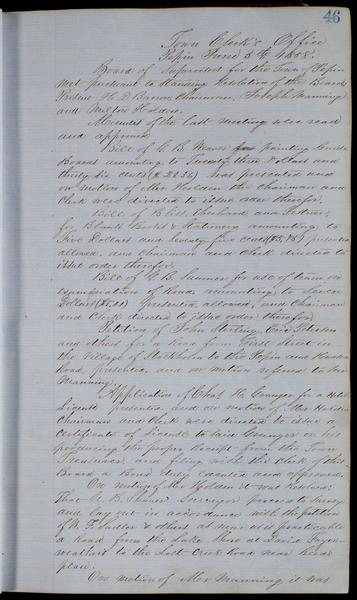 46
Town Clerk's Office
Pepin June 5th 1858.
Board of Supervisors for the Town of Pepin
met pursuant to Standing Resolution of the Board
Present H. D. Barron Chairman, Joseph Manning
and Milton Holden,
Minutes of the last meeting were read
and approved
Bill of E. B. for painting Guide
Boards amounting to Twenty three Dollars and
thirty six cents ($23.36) was presented and
on motion of Mr Holden the Chairman and
Clerk were directed to issue order therefor.
Bill of Bliss, Eberhard and
for Blank Books & Stationery amounting to
Five Dollars and Seventy five cents ($5.75) presented
allowed, and Chairman and Clerk directed to
issue order therefor.
Bill of B. for use of team on
examination of Roads amounting to
Dollars Presented, allowed, and Chairman
and Clerk directed to issue order therefor
Petition of John Sterling, Eric Peterson
and others for a Road from First Street in
the Village of Stockholm to the Pepin and
Road, presented, and on motion referred to Mr
Manning.
Application of Chas. H. Granger for a Hotel
License presented, and on motion of Mr Holden
Chairman and Clerk were directed to issue a
Certificate of License to said Granger on his
producing the proper Receipt from the Town
Treasurer, and filing with the Clerk of this
Board a Bond duly executed and approved.
On motion of Mr Holden it was Resolved
That U. B. Surveyor proceed to survey
and lay out in accordance with the petition
of W. F. & others as near as is practicable
a Road from the Lake Shore at David
weathers to the Lost Creek Road near
place.
On motion of Mr Manning it was